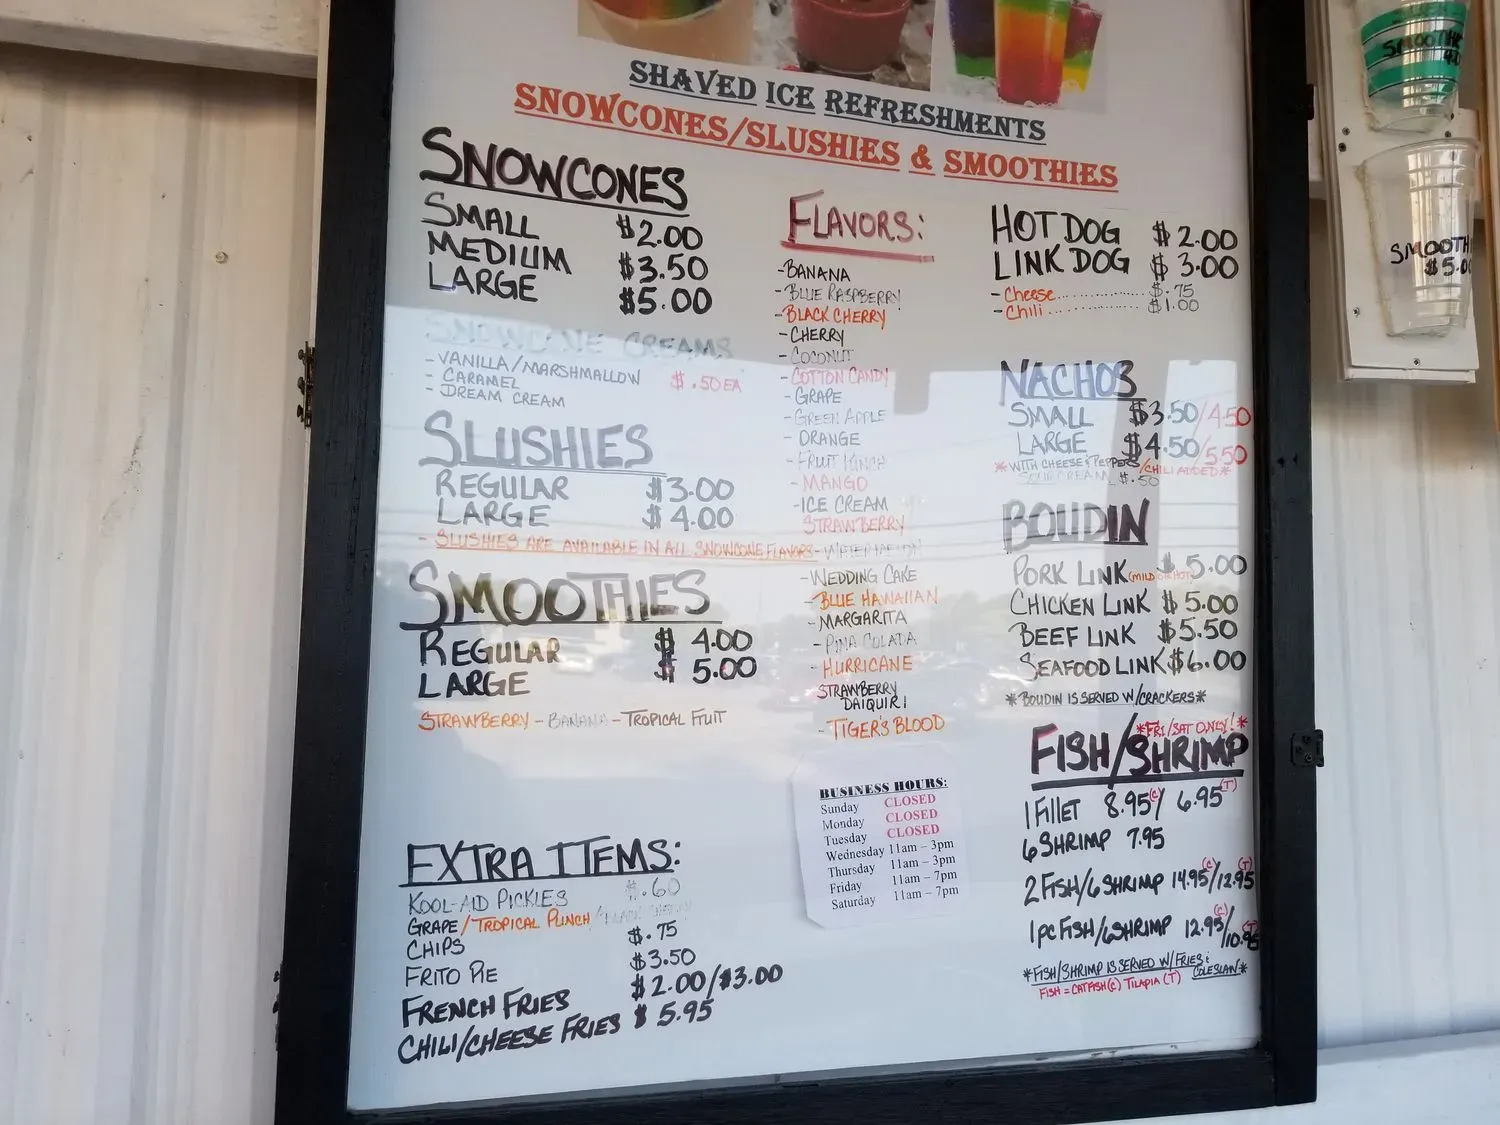 SHAVED ICE REFRESHMENTS
SNOWCONES/SLUSHIES & SMOOTHIES
SNOWCONES
SMALL $2.00
MEDIUM $3.50
LARGE $5.00
SNOWCONE CREAMS
- VANILLA/MARSHMALLOW $.50 EA
- CARAMEL
- DREAM CREAM
SLUSHIES
REGULAR $3.00
LARGE $4.00
- SLUSHIES ARE AVAILABLE IN ALL SNOWCONE FLAVORS
SMOOTHIES
REGULAR $4.00
LARGE $5.00
STRAWBERRY - BANANA - TROPICAL FRUIT
EXTRA ITEMS:
KOOL-AID PICKLES $.60
GRAPE/TROPICAL PUNCH/BLACK CHERRY
CHIPS $.75
FRITO PIE $3.50
FRENCH FRIES $2.00/$3.00
CHILI/CHEESE FRIES $5.95
FLAVORS:
-BANANA
-BLUE RASPBERRY
-BLACK CHERRY
-CHERRY
-COCONUT
-COTTON CANDY
-GRAPE
-GREEN APPLE
- ORANGE
-FRUIT PUNCH
-MANGO
-ICE CREAM
STRAWBERRY
-WATERMELON
-WEDDING CAKE
-BLUE HAWAIIAN
-MARGARITA
-PINA COLADA
-HURRICANE
STRAWBERRY
DAIQUIRI
- TIGER'S BLOOD
BUSINESS HOURS:
Sunday CLOSED
Monday CLOSED
Tuesday CLOSED
Wednesday 11am – 3pm
Thursday 11am – 3pm
Friday 11am – 7pm
Saturday 11am – 7pm
HOT DOG $2.00
LINK DOG $3.00
- Cheese.............. $.75
- Chili .............. $1.00
NACHOS
SMALL $3.50/4.50
LARGE $4.50/5.50
*WITH CHEESE & PEPPERS/CHILI ADDED*
SOUR CREAM $.50
BOUDIN
PORK LINK (MILD OR HOT) $5.00
CHICKEN LINK $5.00
BEEF LINK $5.50
SEAFOOD LINK $6.00
*BOUDIN IS SERVED W/CRACKERS*
*FRI/SAT ONLY!*
FISH/SHRIMP
1 FILLET 8.95(C)/ 6.95(T)
6 SHRIMP 7.95
2 FISH/6 SHRIMP 14.95(C)/12.95(T)
1 PC FISH/6 SHRIMP 12.95(C)/10.95(T)
*FISH/SHRIMP IS SERVED W/FRIES &
COLESLAW*
FISH = CATFISH(C) TILAPIA(T)
SMOOTH
$5.0